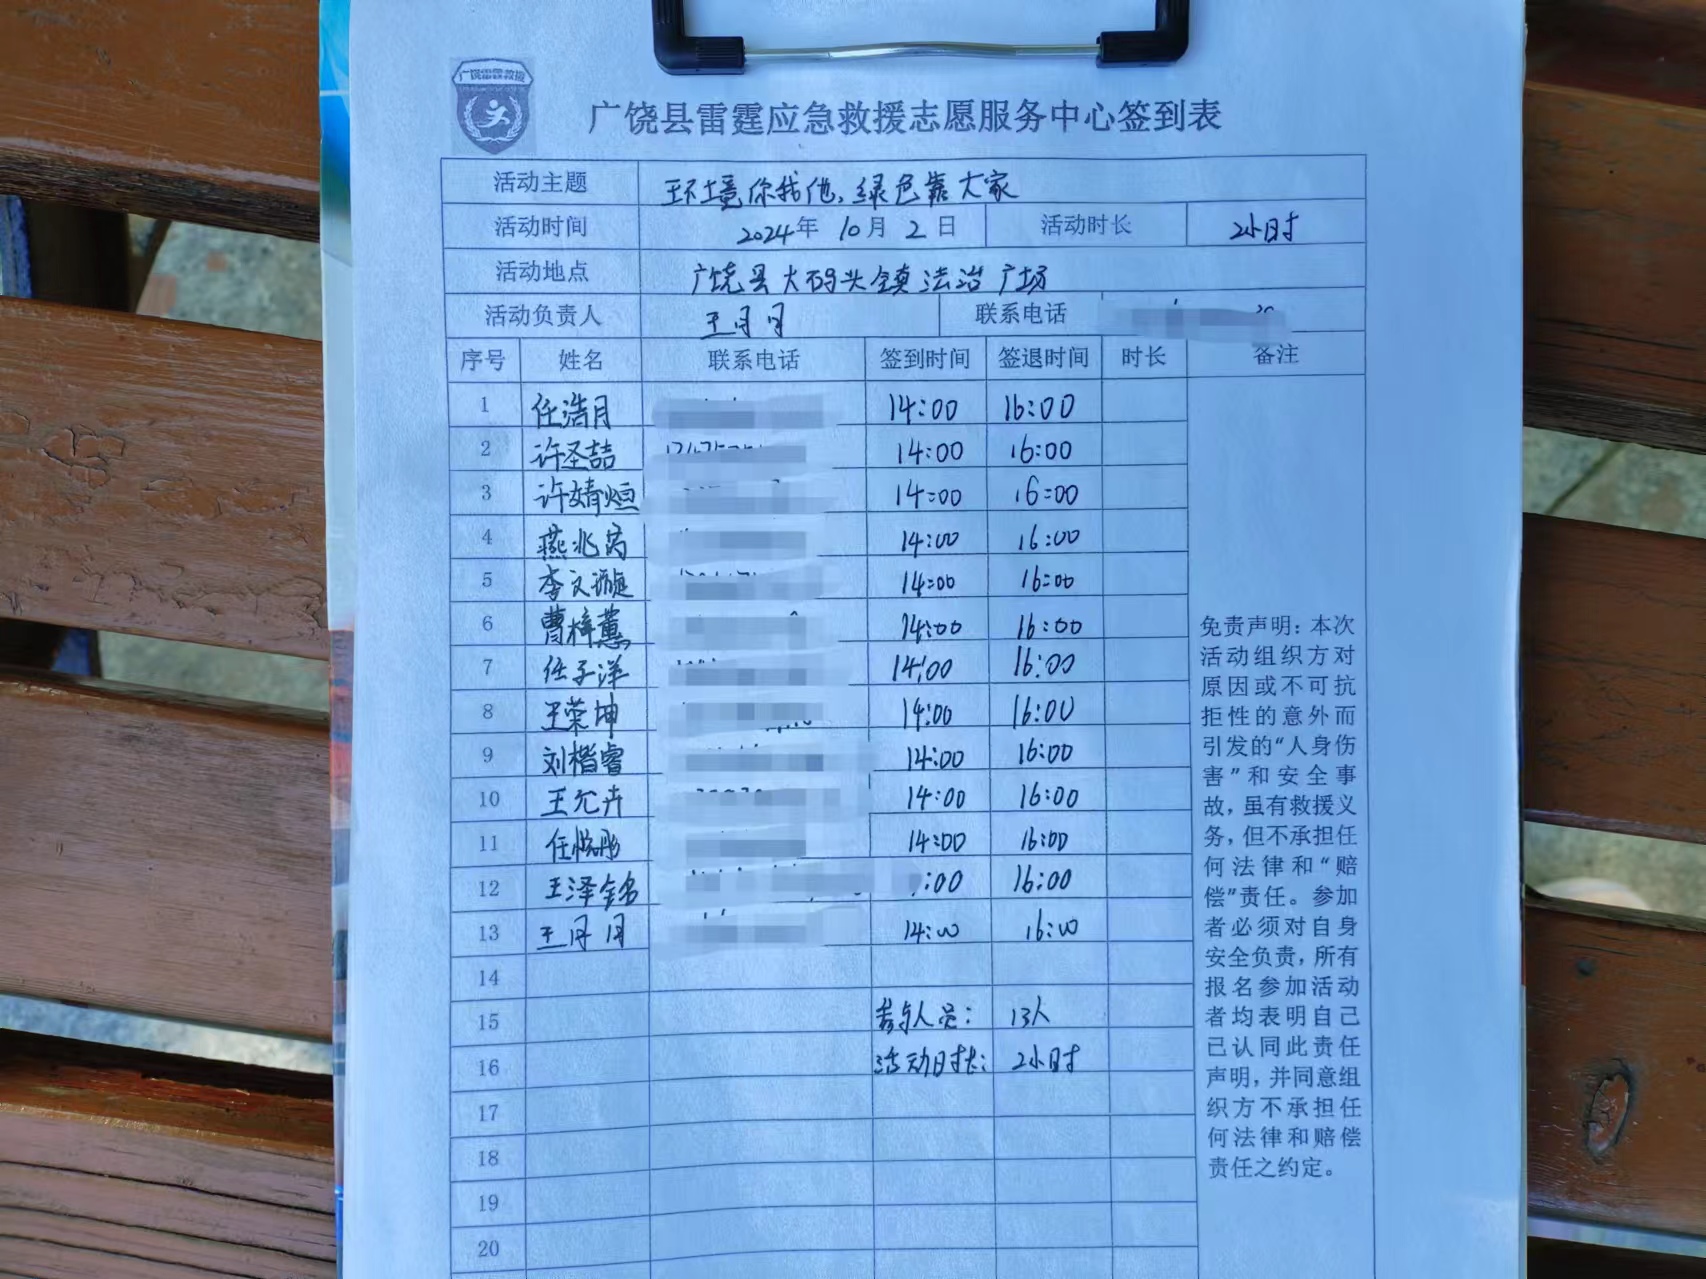 广饶雷霆救援
广饶县雷霆应急救援志愿服务中心签到表
活动主题 环境你我他,绿色靠大家
活动时间 2024年 10月 2日 活动时长 2小时
活动地点 广饶县大码头镇法治广场
活动负责人 王月月 联系电话
序号 姓名 联系电话 签到时间 签退时间 时长 备注
1 任浩月 14:00 16:00
2 许圣喆 14:00 16:00
3 许婧烜 14:00 16:00
4 燕兆芮 14:00 16:00
5 李文漩 14:00 16:00
6 曹梓蕙 14:00 16:00
7 任子洋 14:00 16:00
8 王荣坤 14:00 16:00
9 刘楷睿 14:00 16:00
10 王允卉 14:00 16:00
11 任悦彤 14:00 16:00
12 王泽铭 :00 16:00
13 王月月 14:00 16:00
14
15 参与人员: 13人
16 活动时长: 2小时
17
18
19
20
免责声明:本次
活动组织方对
原因或不可抗
拒性的意外而
引发的“人身伤
害”和安全事
故,虽有救援义
务,但不承担任
何法律和“赔
偿”责任。参加
者必须对自身
安全负责,所有
报名参加活动
者均表明自己
已认同此责任
声明,并同意组
织方不承担任
何法律和赔偿
责任之约定。